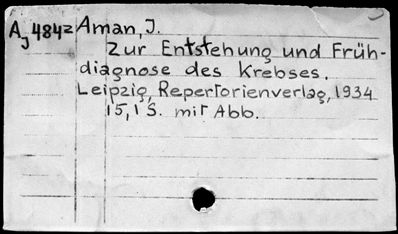 Aj 484z Aman, J.
Zur Entstehung und Früh-
diagnose des Krebses.
Leipzig, Repertorienverlag, 1934
15, 1 S. mit Abb.